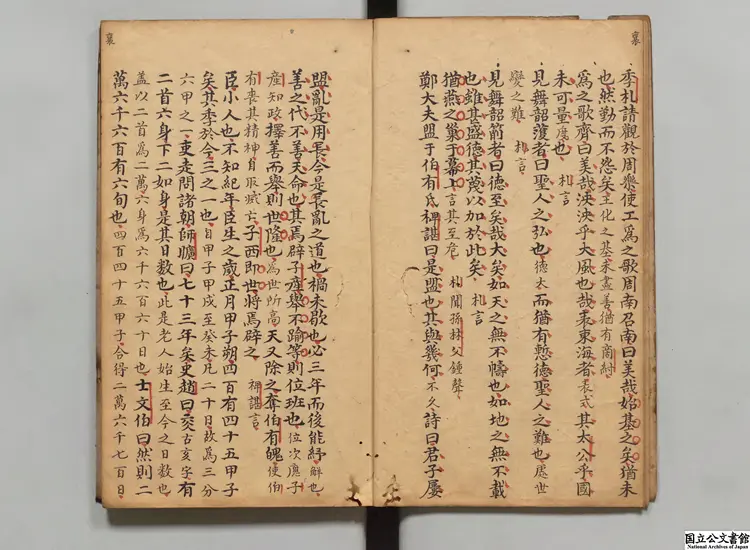 襄
季札請觀於周樂使工爲之歌周南召南曰美哉始基之矣猶未
也然勤而不怨矣王化之基未盡善猶有商紂
爲之歌齊曰美哉泱泱乎大風也哉表東海者表式其太公乎國
未可量度也 札言
見舞韶濩者曰聖人之弘也德大而猶有慙德聖人之難也處世
變之難 札言
見舞韶箾者曰德至矣哉大矣如天之無不幬也如地之無不載
也雖其盛德其蔑以加於此矣 札言
猶燕之巢于幕上言其至危 札聞孫林父鍾聲
鄭大夫盟于伯有氏裨諶曰是盟也其與幾何不久詩曰君子屢
襄
盟亂是用長今是長亂之道也禍未歇也必三年而後能紓解也
善之代不善天命也其焉辟子產舉不踰等則位班也位次應子
產知政擇善而舉則世隆也為世所高天又除之奪伯有魄使伯
有喪其精神自取滅亡子西即世將焉辟之 裨諶言
臣小人也不知紀年臣生之歲正月甲子朔四百有四十五甲子
矣其季於今三之一也自甲子甲戌至癸未凡二十日故爲三分
六甲之一吏走問諸朝師曠曰七十三年矣史趙曰亥古亥字有
二首六身下二如身是其日數也此是老人始生至今之日數也
蓋以二首爲二萬六身爲六千六百六十日也士文伯曰然則二
萬六千六百有六旬也四百四十五甲子合得二萬六千七百日
国立公文書館
National Archives of Japan